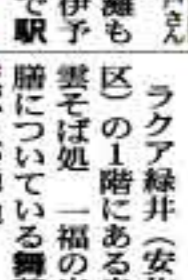 さん
灘も
伊予
で駅
ラクア緑井（安
区）の1階にある
雲そば処　一福の
膳についている舞